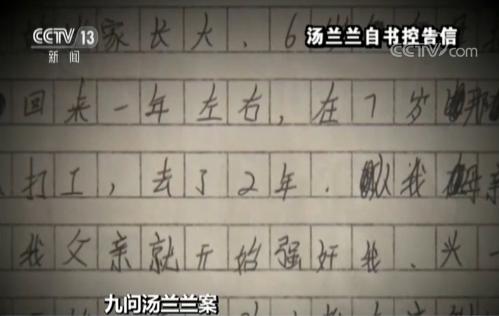 CCTV 13
新闻
汤兰兰自书控告信
CCTV.com
家长大、6
回来一年左右，在7岁那
打工，去了2年．以我母亲
我父亲就开始强奸我、兴一
九问汤兰兰案